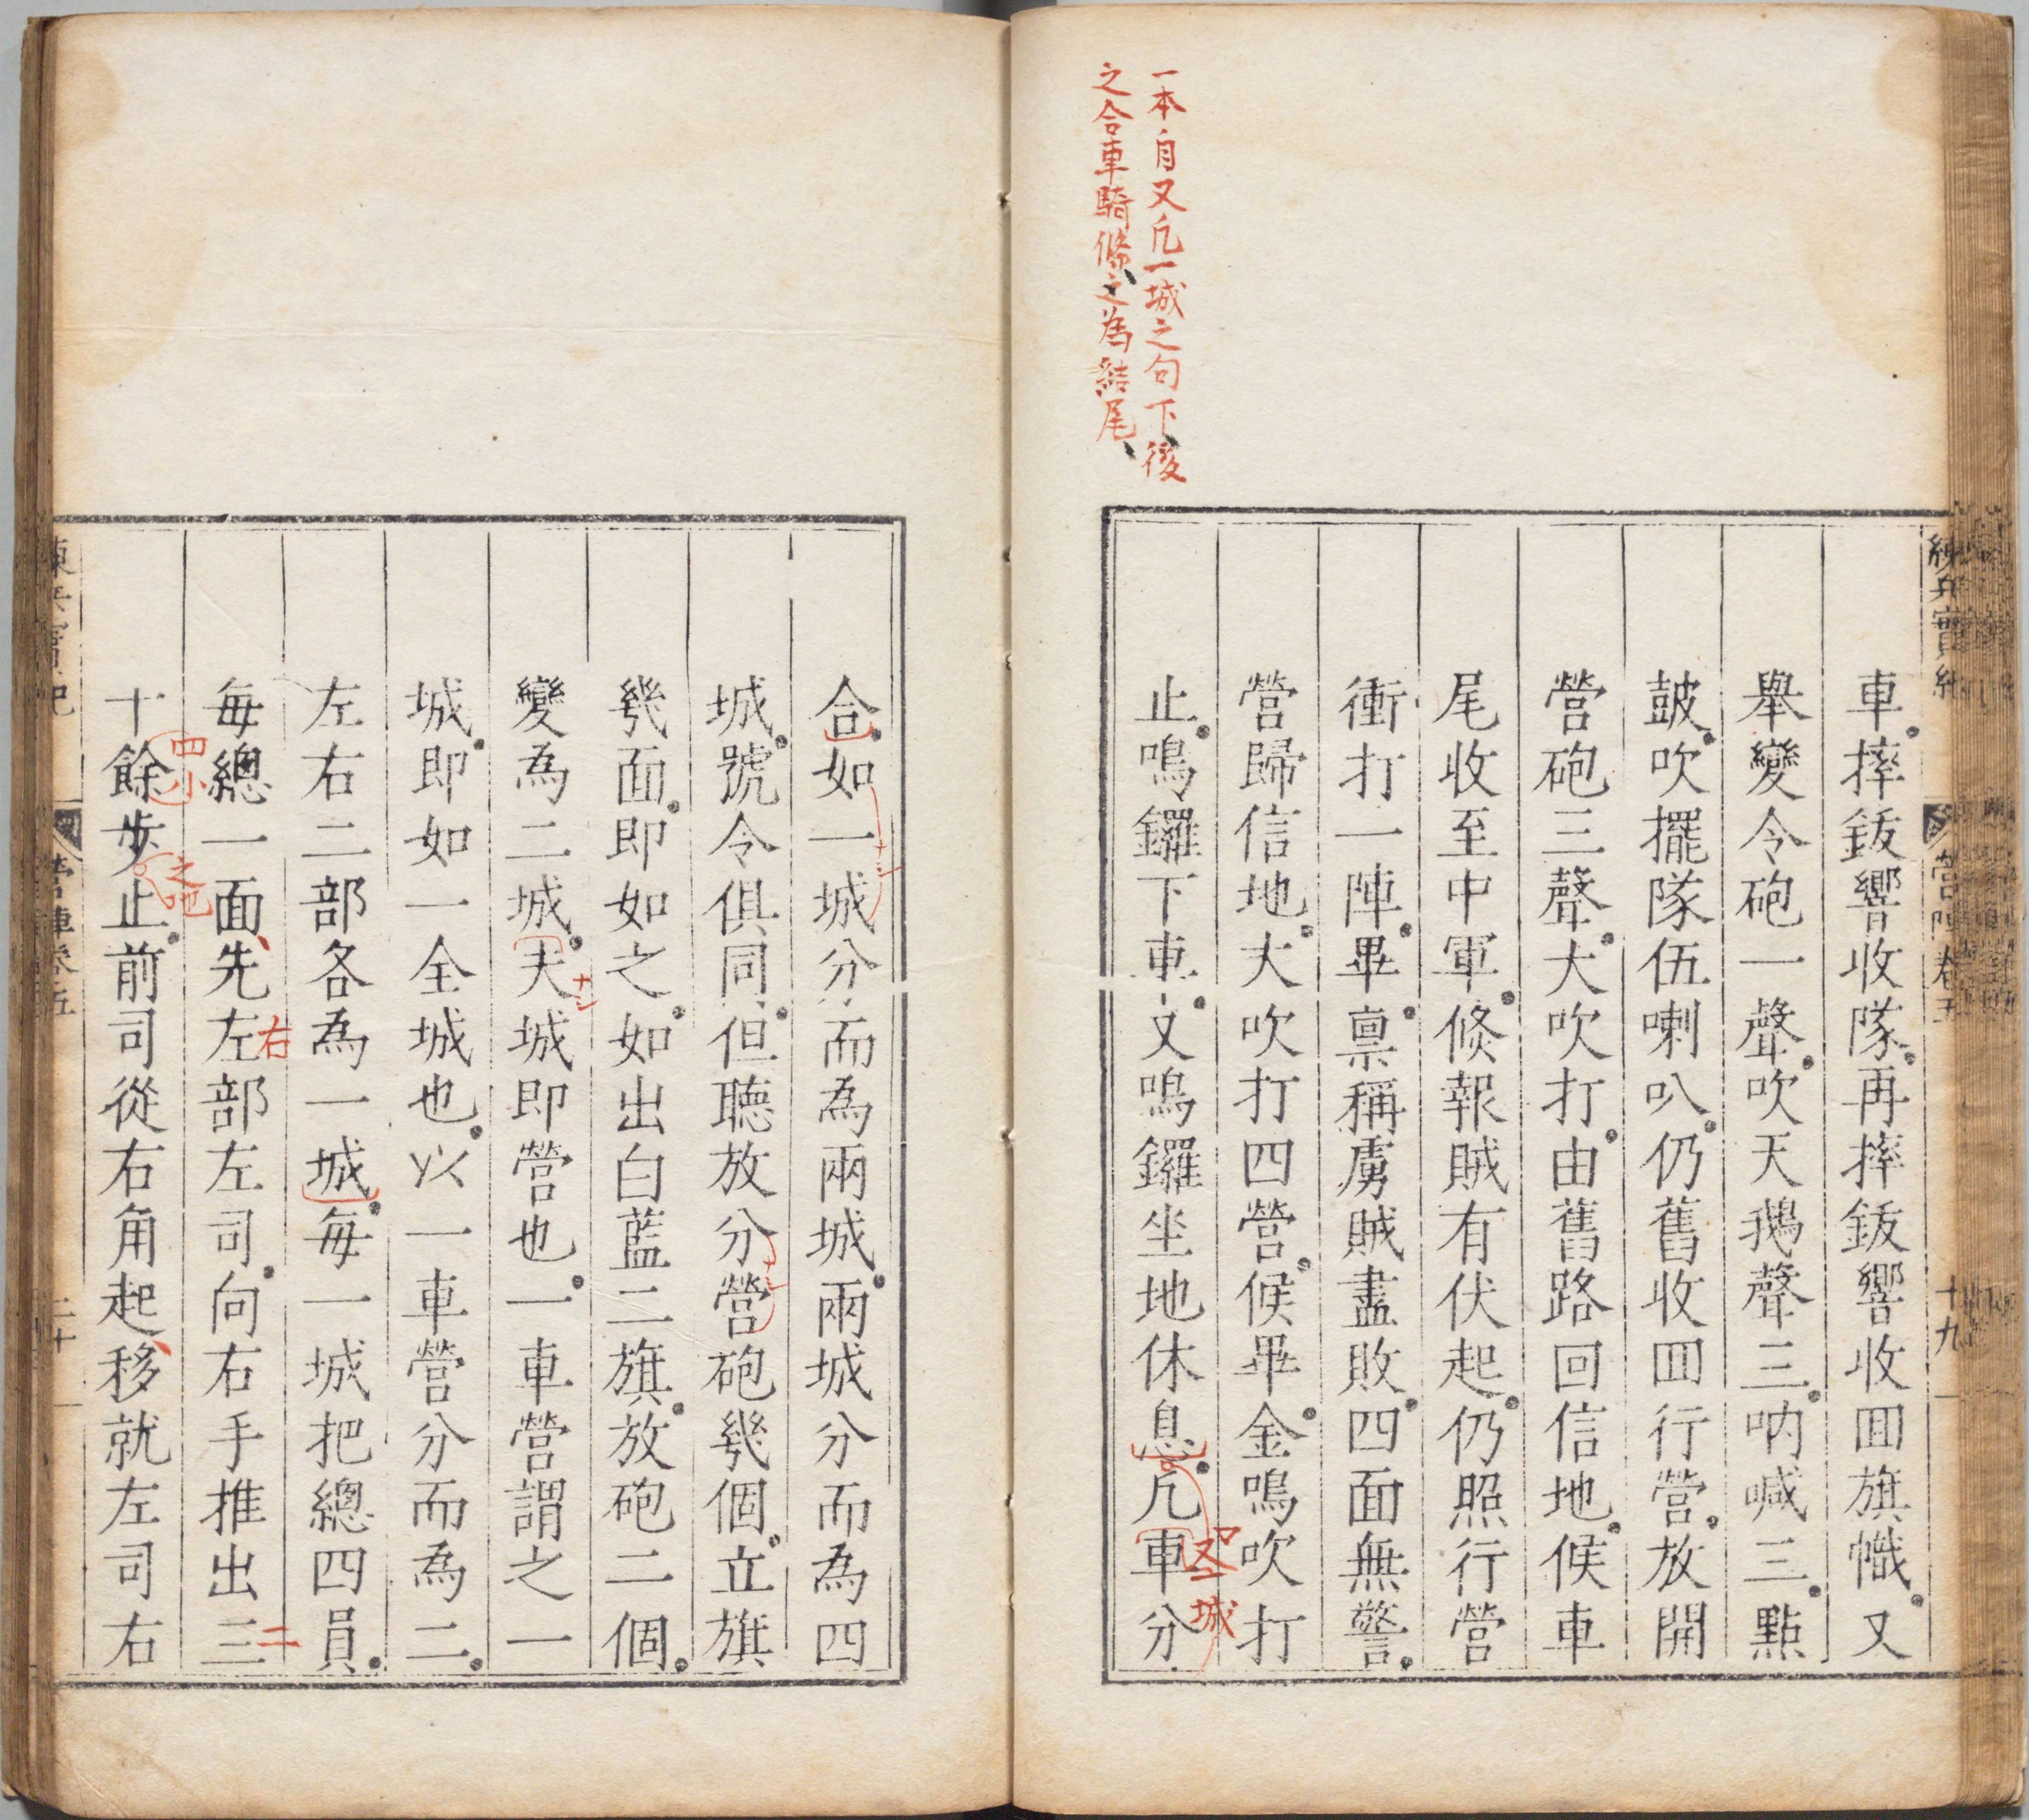 一本自又凢一城之句下後
之合車騎條之為結尾
練兵實紀
營陣卷五
十九
車摔鈸響收隊再摔鈸響收囬旗幟又
舉變令砲一聲吹天鵝聲三吶喊三點
鼓吹擺隊伍喇叭仍舊收囬行營放開
營砲三聲大吹打由舊路回信地候車
尾收至中軍倐報賊有伏起仍照行營
衝打一陣畢禀稱虜賊盡敗四面無警
營歸信地大吹打四營候畢金鳴吹打
止鳴鑼下車又鳴鑼坐地休息凢車分
又
城
合如一城分而為兩城兩城分而為四
城號令俱同但聽放分營砲幾個立旗
幾面即如之如出白藍二旗放砲二個
變為二城夫城即營也一車營謂之一
城即如一全城也以一車營分而為二
左右二部各為一城每一城把總四員
每總一面先左部左司向右手推出三
右
二
十餘步止前司從右角起移就左司右
四小
之地
練兵實紀
營陣卷五
二十